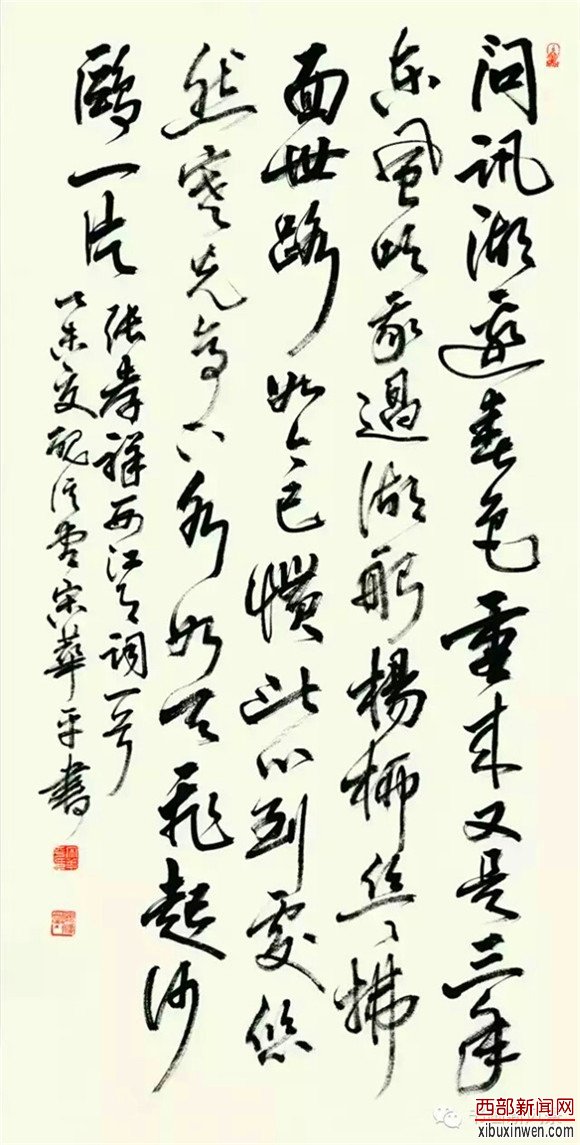 问訊湖邊春色重来又是三年
东風吹我過湖船楊柳丝丝拂
面世路如今已慣此心到處悠
然寒光亭下水如天飛起沙
鷗一片
张孝祥西江月詞一首
乙未夏宋華平書
西部新闻网
xibuxinwen.com